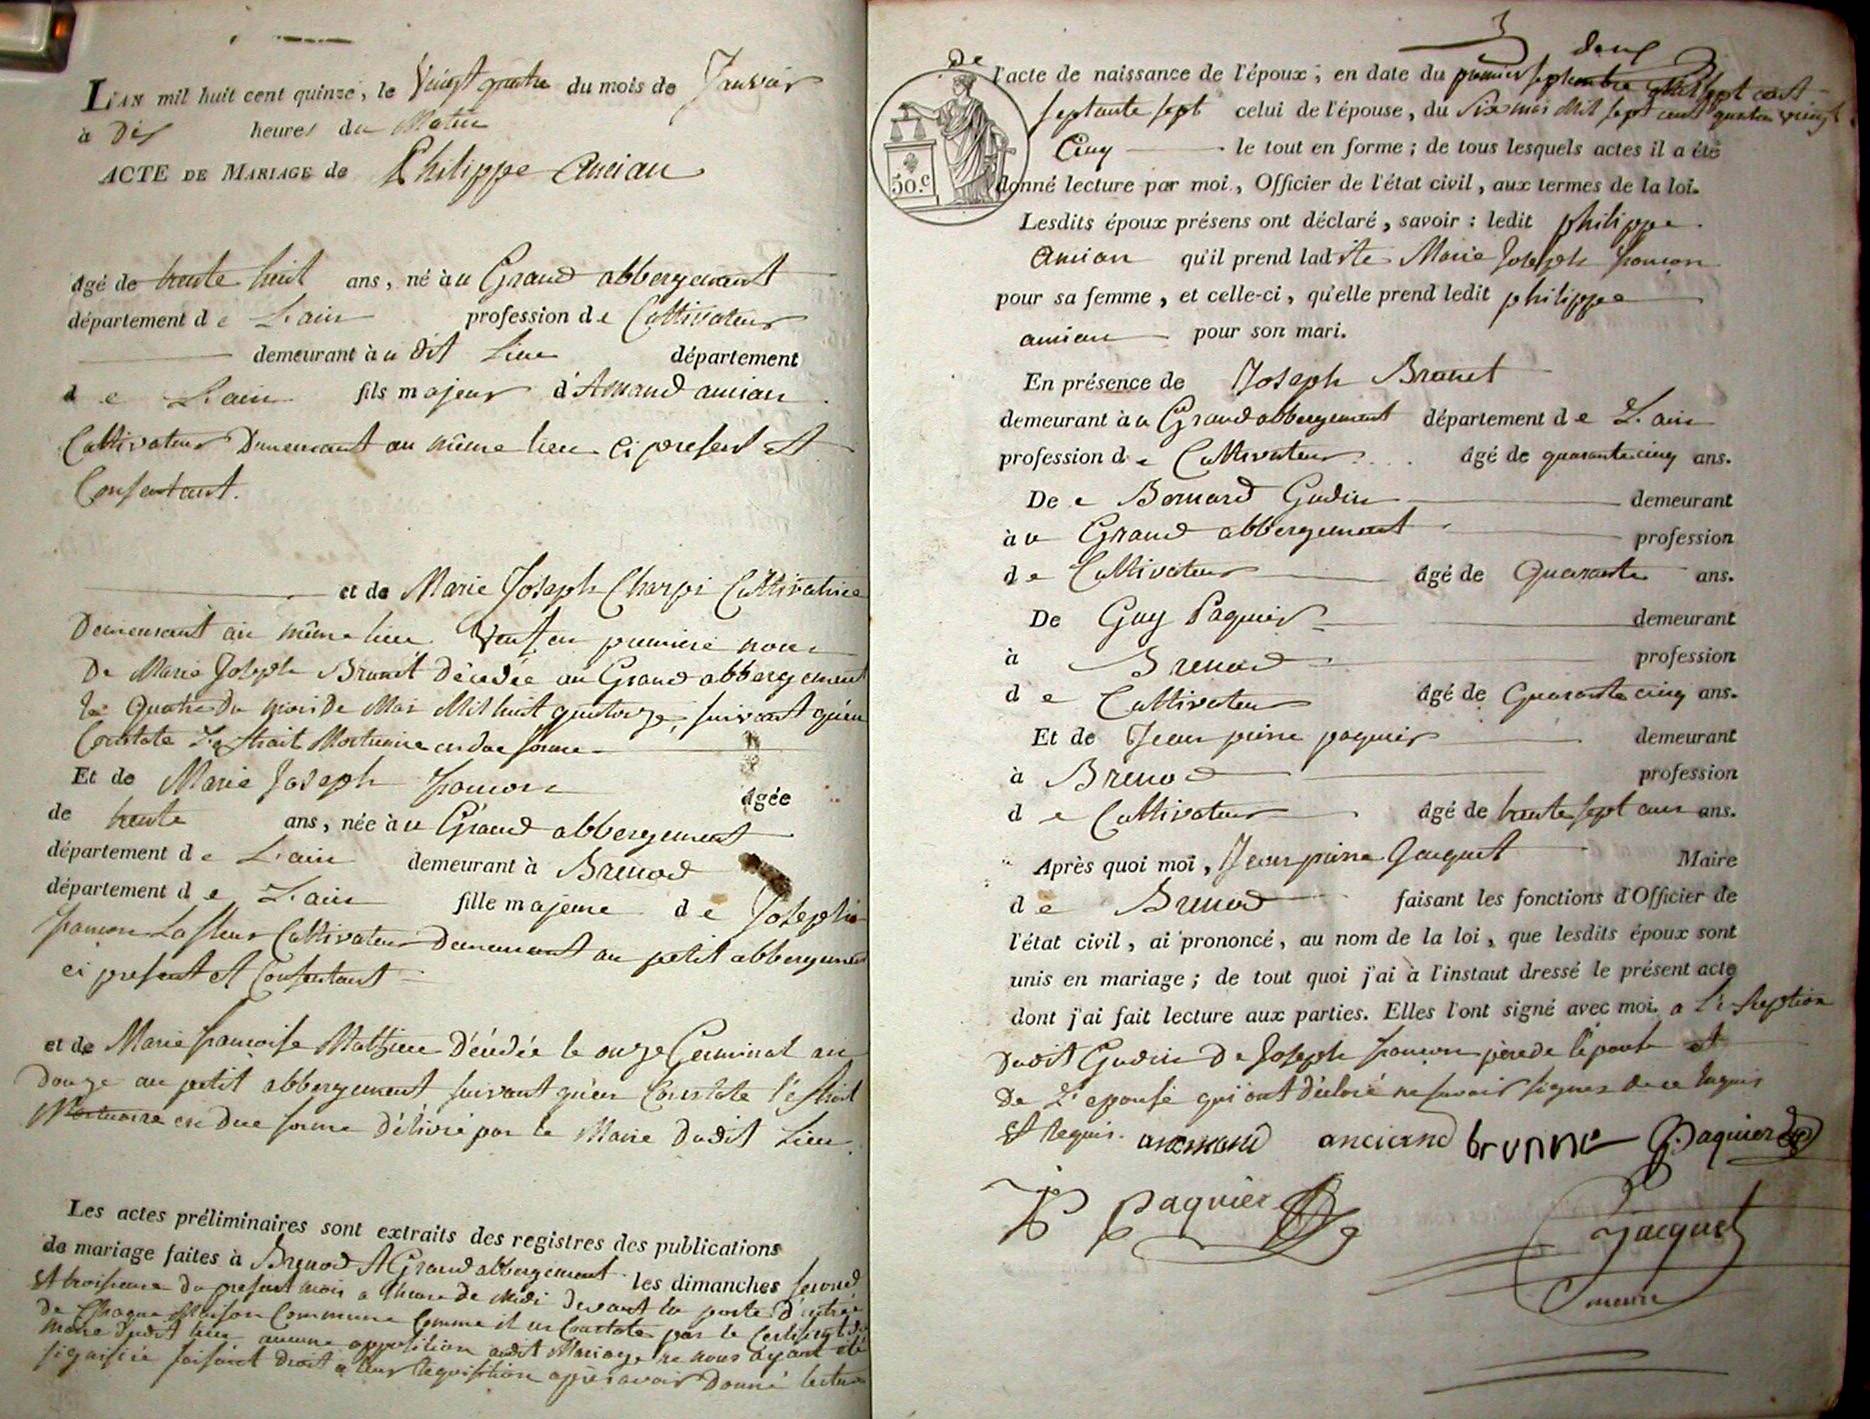 L'AN mil huit cent quinze, le Vingt quatre du mois de Janvier
à Dix heures du Matin
ACTE DE MARIAGE de Philippe Ancian
âgé de trente huit ans, né à u Grand abbergement
département d e L'ain profession d e Cultivateur
demeurant à u dit Lieu département
d e L'ain fils majeur d' ancian
Cultivateur Demeurant au même lieu ci present Et
Consentant.
et de Marie Joseph Charpi Cultivatrice
Demeurant au même lieu Veuf en premiere noce
De Marie Joseph Brunet Décédée au Grand abbergement
le Quatre Du mois De Mai Mil huit quatorze, suivant qu'en
Constate L'extrait Mortuaire en due forme
Et de Marie Joseph françon âgée
de trente ans, née à u Grand abbergement
département d e L'ain demeurant à Brenod
département d e L'ain fille majeure d e Joseph
françon Cultivateur Demeurant au petit abbergement
ci present et Consentant
et de Marie françoise Mathieu Décédée le onze Germinal an
douze au petit abbergement suivant qu'en Constate l'extrait
Mortuaire en due forme Délivré par le Maire Dudit Lieu.
Les actes préliminaires sont extraits des registres des publications
de mariage faites à Brenod Et Grand abbergement les dimanches second
Et troisieme du present mois a l'heure de Midi Devant la porte d'entrée
De Chaque Maison Commune Comme il en Constate par le Certificat du
Maire dudit lieu aucune opposition audit Mariage ne nous ayant été
signifiée faisant droit a leur Requisition apres avoir Donné lecture
3
deux
de
l'acte de naissance de l'époux ; en date du premier septembre mil sept cent
septante sept celui de l'épouse, du Six mai Mil sept cent quatre vingt
Cinq le tout en forme ; de tous lesquels actes il a été
donné lecture par moi, Officier de l'état civil, aux termes de la loi.
50.c
Lesdits époux présens ont déclaré, savoir : ledit philippe
Ancian qu'il prend lad ite Marie Joseph françon
pour sa femme, et celle-ci, qu'elle prend ledit philippe
ancian pour son mari.
En présence de Joseph Brunet
demeurant à u Grand abbergement département d e L'ain
profession d e Cultivateur âgé de quarante cinq ans.
De e Bernard Gudin demeurant
à u Grand abbergement profession
d e Cultivateur âgé de Quarante ans.
De Guy Paquier demeurant
à Brenod profession
d e Cultivateur âgé de Quarante cinq ans.
Et de Jean pierre paquier demeurant
à Brenod profession
d e Cultivateur âgé de trente sept ans ans.
Après quoi moi, Jean pierre Jacquet Maire
d e Brenod faisant les fonctions d'Officier de
l'état civil, ai prononcé, au nom de la loi, que lesdits époux sont
unis en mariage ; de tout quoi j'ai à l'instant dressé le présent acte
dont j'ai fait lecture aux parties. Elles l'ont signé avec moi. a L'exeption
Dudit Gudin De Joseph françon pere de l'epouse et
De L'epouse qui ont déclaré ne savoir signer de ce Enquis
Et Requis. anciand brunne Paquier
Paquier
Jacquet
maire